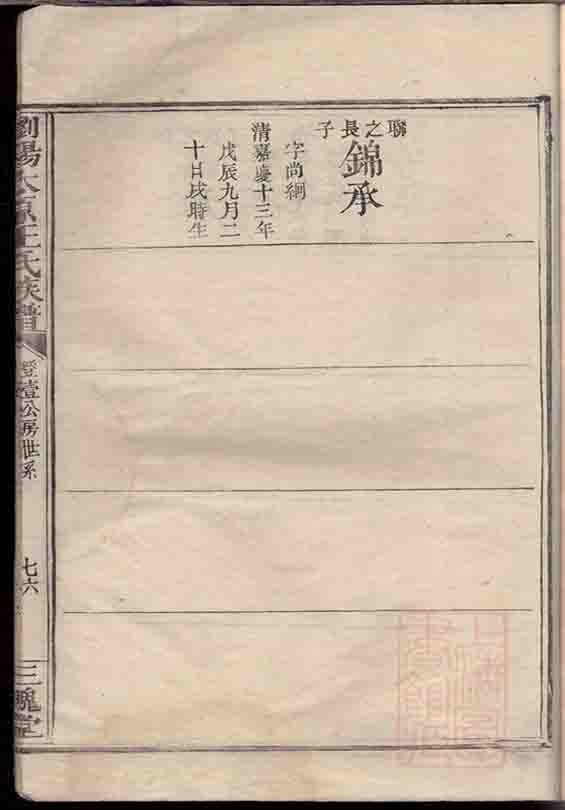 聯之長子
錦承
字尚綱
清嘉慶十三年
戊辰九月二
十日戌時生
劉陽太原王氏族譜
登壹公房世系
七六
三槐堂